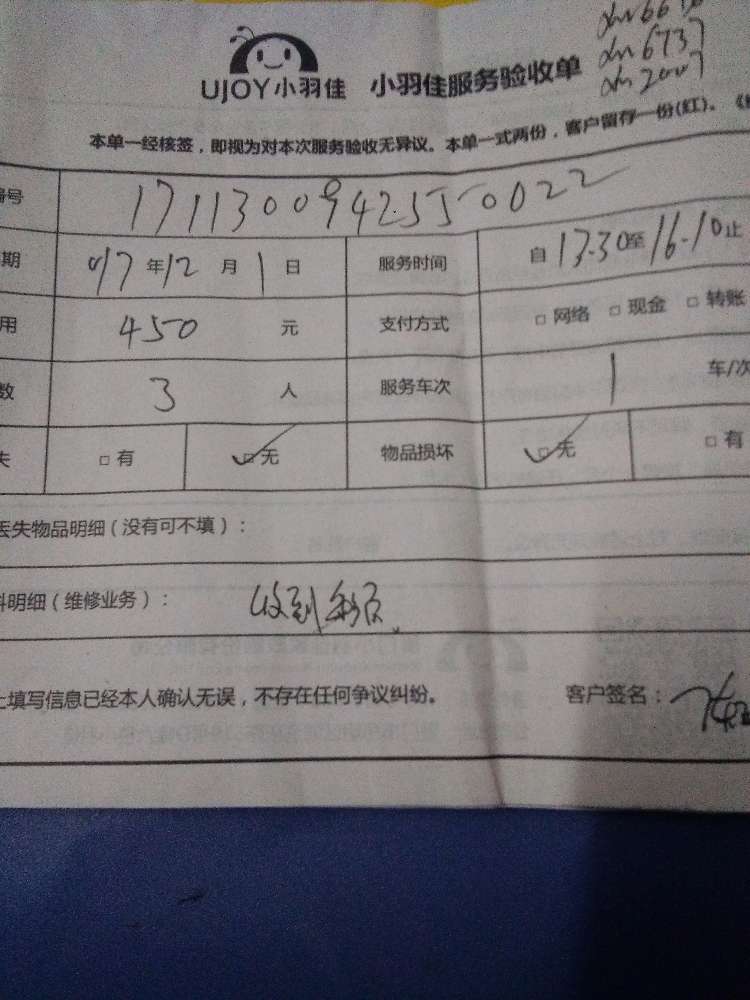 6737
2007
UJOY小羽佳 小羽佳服务验收单
本单一经核签，即视为对本次服务验收无异议。本单一式两份，客户留存一份(红)。
号 17113009425550022
期 017年12月1日 服务时间 自13.30至16.10止
用 450元 支付方式 □网络 □现金 □转账
数 3人 服务车次 1车/次
失 □有 □无 物品损坏 □无 □有
丢失物品明细（没有可不填）：
料明细（维修业务）： 收到
上填写信息已经本人确认无误，不存在任何争议纠纷。 客户签名：